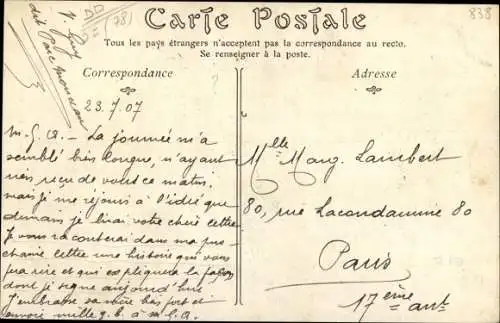 DD
(78)
838
V. Guy
dit Parc Monceau
Carte Postale
Tous les pays étrangers n'acceptent pas la correspondance au recto.
Se renseigner à la poste.
Correspondance
Adresse
23.7.07
m. G. A. — La journée m'a
semblé bien longue, n'ayant
rien reçu de vous ce matin.
mais je me réjouis à l'idée que
demain je lirai votre chère lettre
Je vous raconterai dans ma pro-
chaine lettre une histoire qui vous
fera rire et qui expliquera la façon
dont je signe aujourd'hui
J'embrasse bien fort et
envoie mille g. b. à m. G. A.
Mlle Marg. Lambert
80, rue Lacondamine 80
Paris
17ème arrt